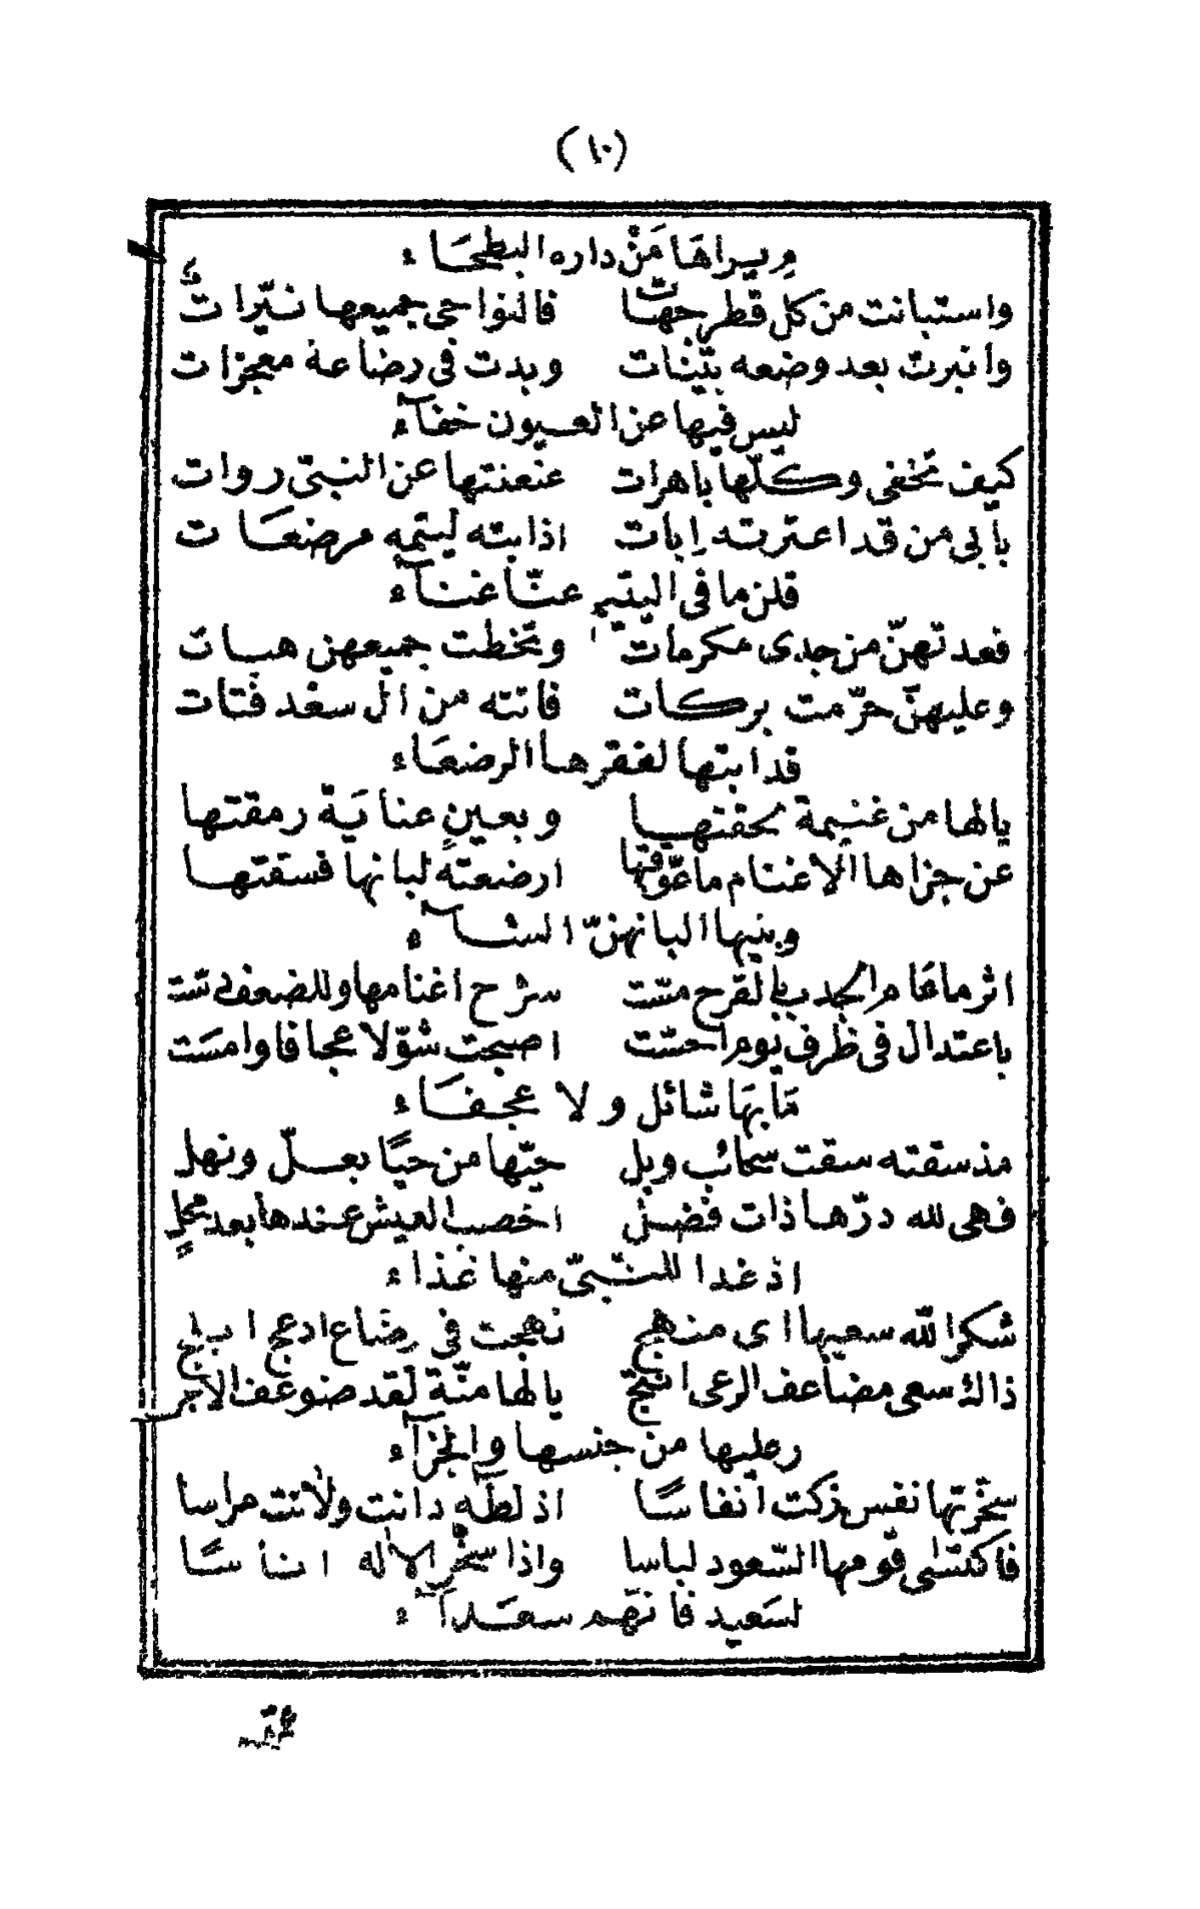 (١٠)
م يراها مَنْ داره البطحَاء
واستبانت من كل قطر جهات فالنواحي جميعها نيّرات
وانبرت بعد وضعه بيّنات وبدت في رضاعة معجزات
ليس فيها عن العيون خفآء
كيف تخفى وكلّها باهرات عنعنتها عن النبيّ روات
بابي من قد اعترته اباتٌ اذابته ليتمه مرضعَات
قلن ما في اليتيم عنّا غنآء
فعدتهنّ من جدى مكرمات وتخطت جميعهن هبات
وعليهنّ حرّمت بركات فاتته من ال سعد فتات
قد ابتها لفقرها الرضعَاء
يالها من غنيمة لحقتها وبعينٍ عنايَة رمقتها
عن جزاها الاغنام ما عوّقتها ارضعته لبانها فسقتها
وبنيها البانهنّ الشآء
اثر ماقام الجدب بالقرح مسّت سرح اغنامها وللضعف
باعتدال في ظرف يوم احسّت اصبحت شوّلا عجافا وامسَت
مَا بهَا شائل ولا عجفَاء
مذ سقته سقت سحائب وبل حيّها من حيًا بعلّ ونهل
فهي لله درّها ذات فضل اخصب العيش عندها بعد محلٍ
اذ غدا للنبيّ منها غذاء
شكر الله سعيها اي منهج نهجت في رضاع ادعج ابلج
ذاك سعى مضاعف الرعى انتج يالها منّة لقد ضوعف الاجر
رعليها من جنسها والجزآء
سخّرتها نفس زكت انفاسًا اذ لطه دانت ولانت مراسا
فاكتسى قومها السّعود لباسا واذا سخّر الاله اناسًا
لسَعيد فانهّم سعدآء